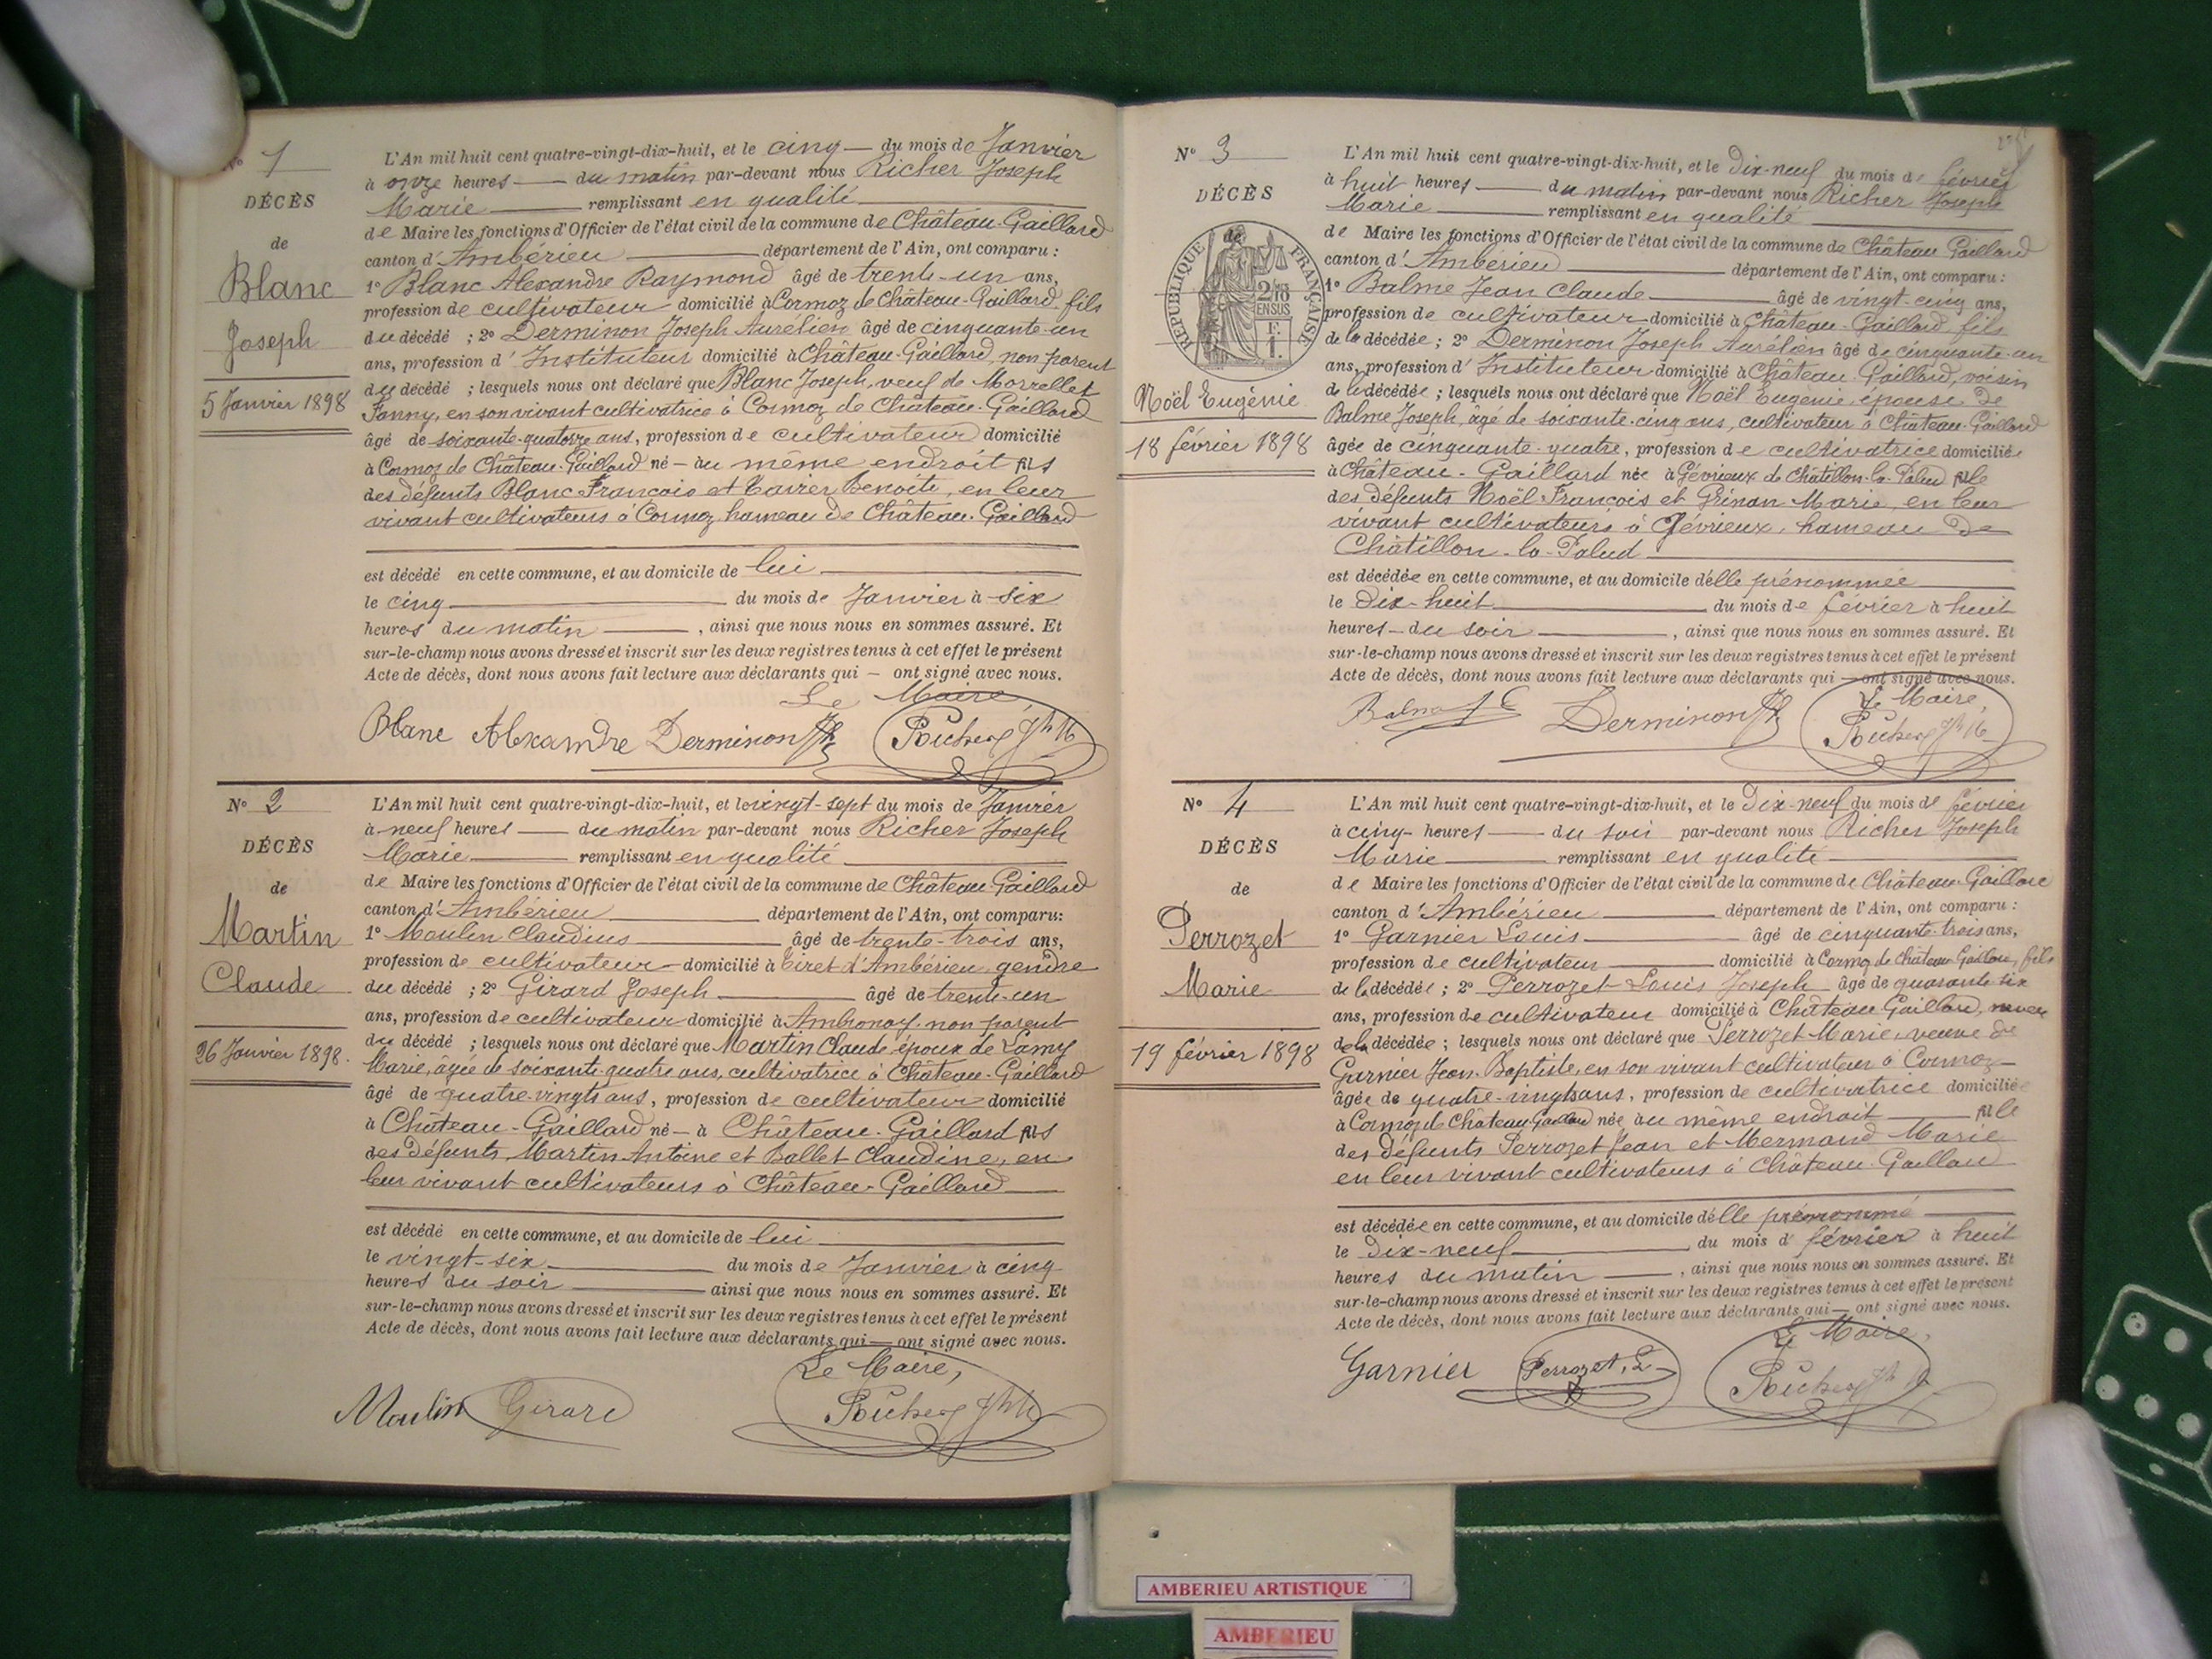 N° 1
DÉCÈS
de
Blanc
Joseph
5 Janvier 1898
L'An mil huit cent quatre-vingt-dix-huit, et le cinq du mois de Janvier
à onze heures du matin par-devant nous Richer Joseph
Marie remplissant en qualité
de Maire les fonctions d'Officier de l'état civil de la commune de Château-Gaillard
canton d'Ambérieu département de l'Ain, ont comparu :
1° Blanc Alexandre Raymond âgé de trente-un ans,
profession de cultivateur domicilié à Cormoz de Château-Gaillard, fils
du décédé ; 2° Derminon Joseph Aurélien âgé de cinquante-un
ans, profession d'Instituteur domicilié à Château-Gaillard, non parent
du décédé ; lesquels nous ont déclaré que Blanc Joseph, veuf de Morrellet
Fanny, en son vivant cultivatrice à Cormoz de Château-Gaillard
âgé de soixante-quatorze ans, profession de cultivateur domicilié
à Cormoz de Château-Gaillard né au même endroit fils
des défunts Blanc François et Benoîte, en leur
vivant cultivateurs à Cormoz hameau de Château-Gaillard
est décédé en cette commune, et au domicile de lui
le cinq du mois de Janvier à six
heures du matin , ainsi que nous nous en sommes assuré. Et
sur-le-champ nous avons dressé et inscrit sur les deux registres tenus à cet effet le présent
Acte de décès, dont nous avons fait lecture aux déclarants qui ont signé avec nous.
Le Maire
Blanc Alexandre Derminon Jh Richer Jh M
N° 2
DÉCÈS
de
Martin
Claude
26 Janvier 1898.
L'An mil huit cent quatre-vingt-dix-huit, et le vingt-sept du mois de Janvier
à neuf heures du matin par-devant nous Richer Joseph
Marie remplissant en qualité
de Maire les fonctions d'Officier de l'état civil de la commune de Château-Gaillard
canton d'Ambérieu département de l'Ain, ont comparu:
1° Moulin Claudius âgé de trente-trois ans,
profession de cultivateur domicilié à Tiret d'Ambérieu, gendre
du décédé ; 2° Girard Joseph âgé de trente-un
ans, profession de cultivateur domicilié à Ambronay, non parent
du décédé ; lesquels nous ont déclaré que Martin Claude époux de Lamy
Marie, âgée de soixante-quatre ans, cultivatrice à Château-Gaillard
âgé de quatre-vingts ans, profession de cultivateur domicilié
à Château-Gaillard né à Château-Gaillard fils
des défunts Martin Antoine et Ballet Claudine, en
leur vivant cultivateurs à Château-Gaillard
est décédé en cette commune, et au domicile de lui
le vingt-six du mois de Janvier à cinq
heures du soir ainsi que nous nous en sommes assuré. Et
sur-le-champ nous avons dressé et inscrit sur les deux registres tenus à cet effet le présent
Acte de décès, dont nous avons fait lecture aux déclarants qui ont signé avec nous.
Le Maire,
Moulin Girard Richer Jh M
N° 3
DÉCÈS
de
RÉPUBLIQUE FRANÇAISE
2/10
EN SUS
F.
1.
Noël Eugénie
18 février 1898
L'An mil huit cent quatre-vingt-dix-huit, et le dix-neuf du mois de février
à huit heures du matin par-devant nous Richer Joseph
Marie remplissant en qualité
de Maire les fonctions d'Officier de l'état civil de la commune de Château Gaillard
canton d'Ambérieu département de l'Ain, ont comparu:
1° Balme Jean Claude âgé de vingt-cinq ans,
profession de cultivateur domicilié à Château-Gaillard, fils
de la décédée ; 2° Derminon Joseph Aurélien âgé de cinquante-un
ans, profession d'Instituteur domicilié à Château-Gaillard, voisin
de la décédée ; lesquels nous ont déclaré que Noël Eugénie, épouse de
Balme Joseph, âgé de soixante-cinq ans, cultivateur à Château-Gaillard
âgée de cinquante-quatre, profession de cultivatrice domiciliée
à Château-Gaillard née à Gévrieux de Châtillon-la-Palud fille
des défunts Noël François et Marie, en leur
vivant cultivateurs à Gévrieux, hameau de
Châtillon-la-Palud
est décédée en cette commune, et au domicile d'elle prénommée
le dix-huit du mois de février à huit
heures du soir , ainsi que nous nous en sommes assuré. Et
sur-le-champ nous avons dressé et inscrit sur les deux registres tenus à cet effet le présent
Acte de décès, dont nous avons fait lecture aux déclarants qui ont signé avec nous.
Le Maire,
Balme J C Derminon Jh Richer Jh M
N° 4
DÉCÈS
de
Perrozet
Marie
19 février 1898
L'An mil huit cent quatre-vingt-dix-huit, et le dix-neuf du mois de février
à cinq heures du soir par-devant nous Richer Joseph
Marie remplissant en qualité
de Maire les fonctions d'Officier de l'état civil de la commune de Château-Gaillard
canton d'Ambérieu département de l'Ain, ont comparu :
1° Garnier Louis âgé de cinquante-trois ans,
profession de cultivateur domicilié à Cormoz de Château-Gaillard, fils
de la décédée ; 2° Perrozet Louis Joseph âgé de quarante-six
ans, profession de cultivateur domicilié à Château Gaillard, neveu
de la décédée ; lesquels nous ont déclaré que Perrozet Marie, veuve de
Garnier Jean-Baptiste, en son vivant cultivateur à Cormoz
âgée de quatre-vingts ans, profession de cultivatrice domiciliée
à Cormoz de Château Gaillard née au même endroit fille
des défunts Perrozet Jean et Mermand Marie
en leur vivant cultivateurs à Château-Gaillard
est décédée en cette commune, et au domicile d'elle prénommé
le dix-neuf du mois de février à huit
heures du matin , ainsi que nous nous en sommes assuré. Et
sur-le-champ nous avons dressé et inscrit sur les deux registres tenus à cet effet le présent
Acte de décès, dont nous avons fait lecture aux déclarants qui ont signé avec nous.
Le Maire,
Garnier Perrozet, L Richer Jh M
AMBERIEU ARTISTIQUE
AMBERIEU